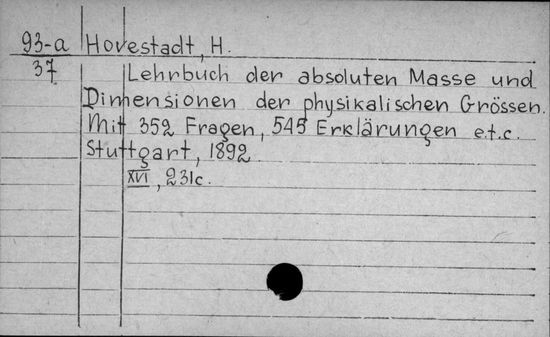 93-a Hovestadt, H.
37
Lehrbuch der absoluten Masse und
Dimensionen der physikalischen Grössen.
Mit 352 Fragen, 545 Erklärungen e.t.c.
Stuttgart, 1892
XVI, 231c.